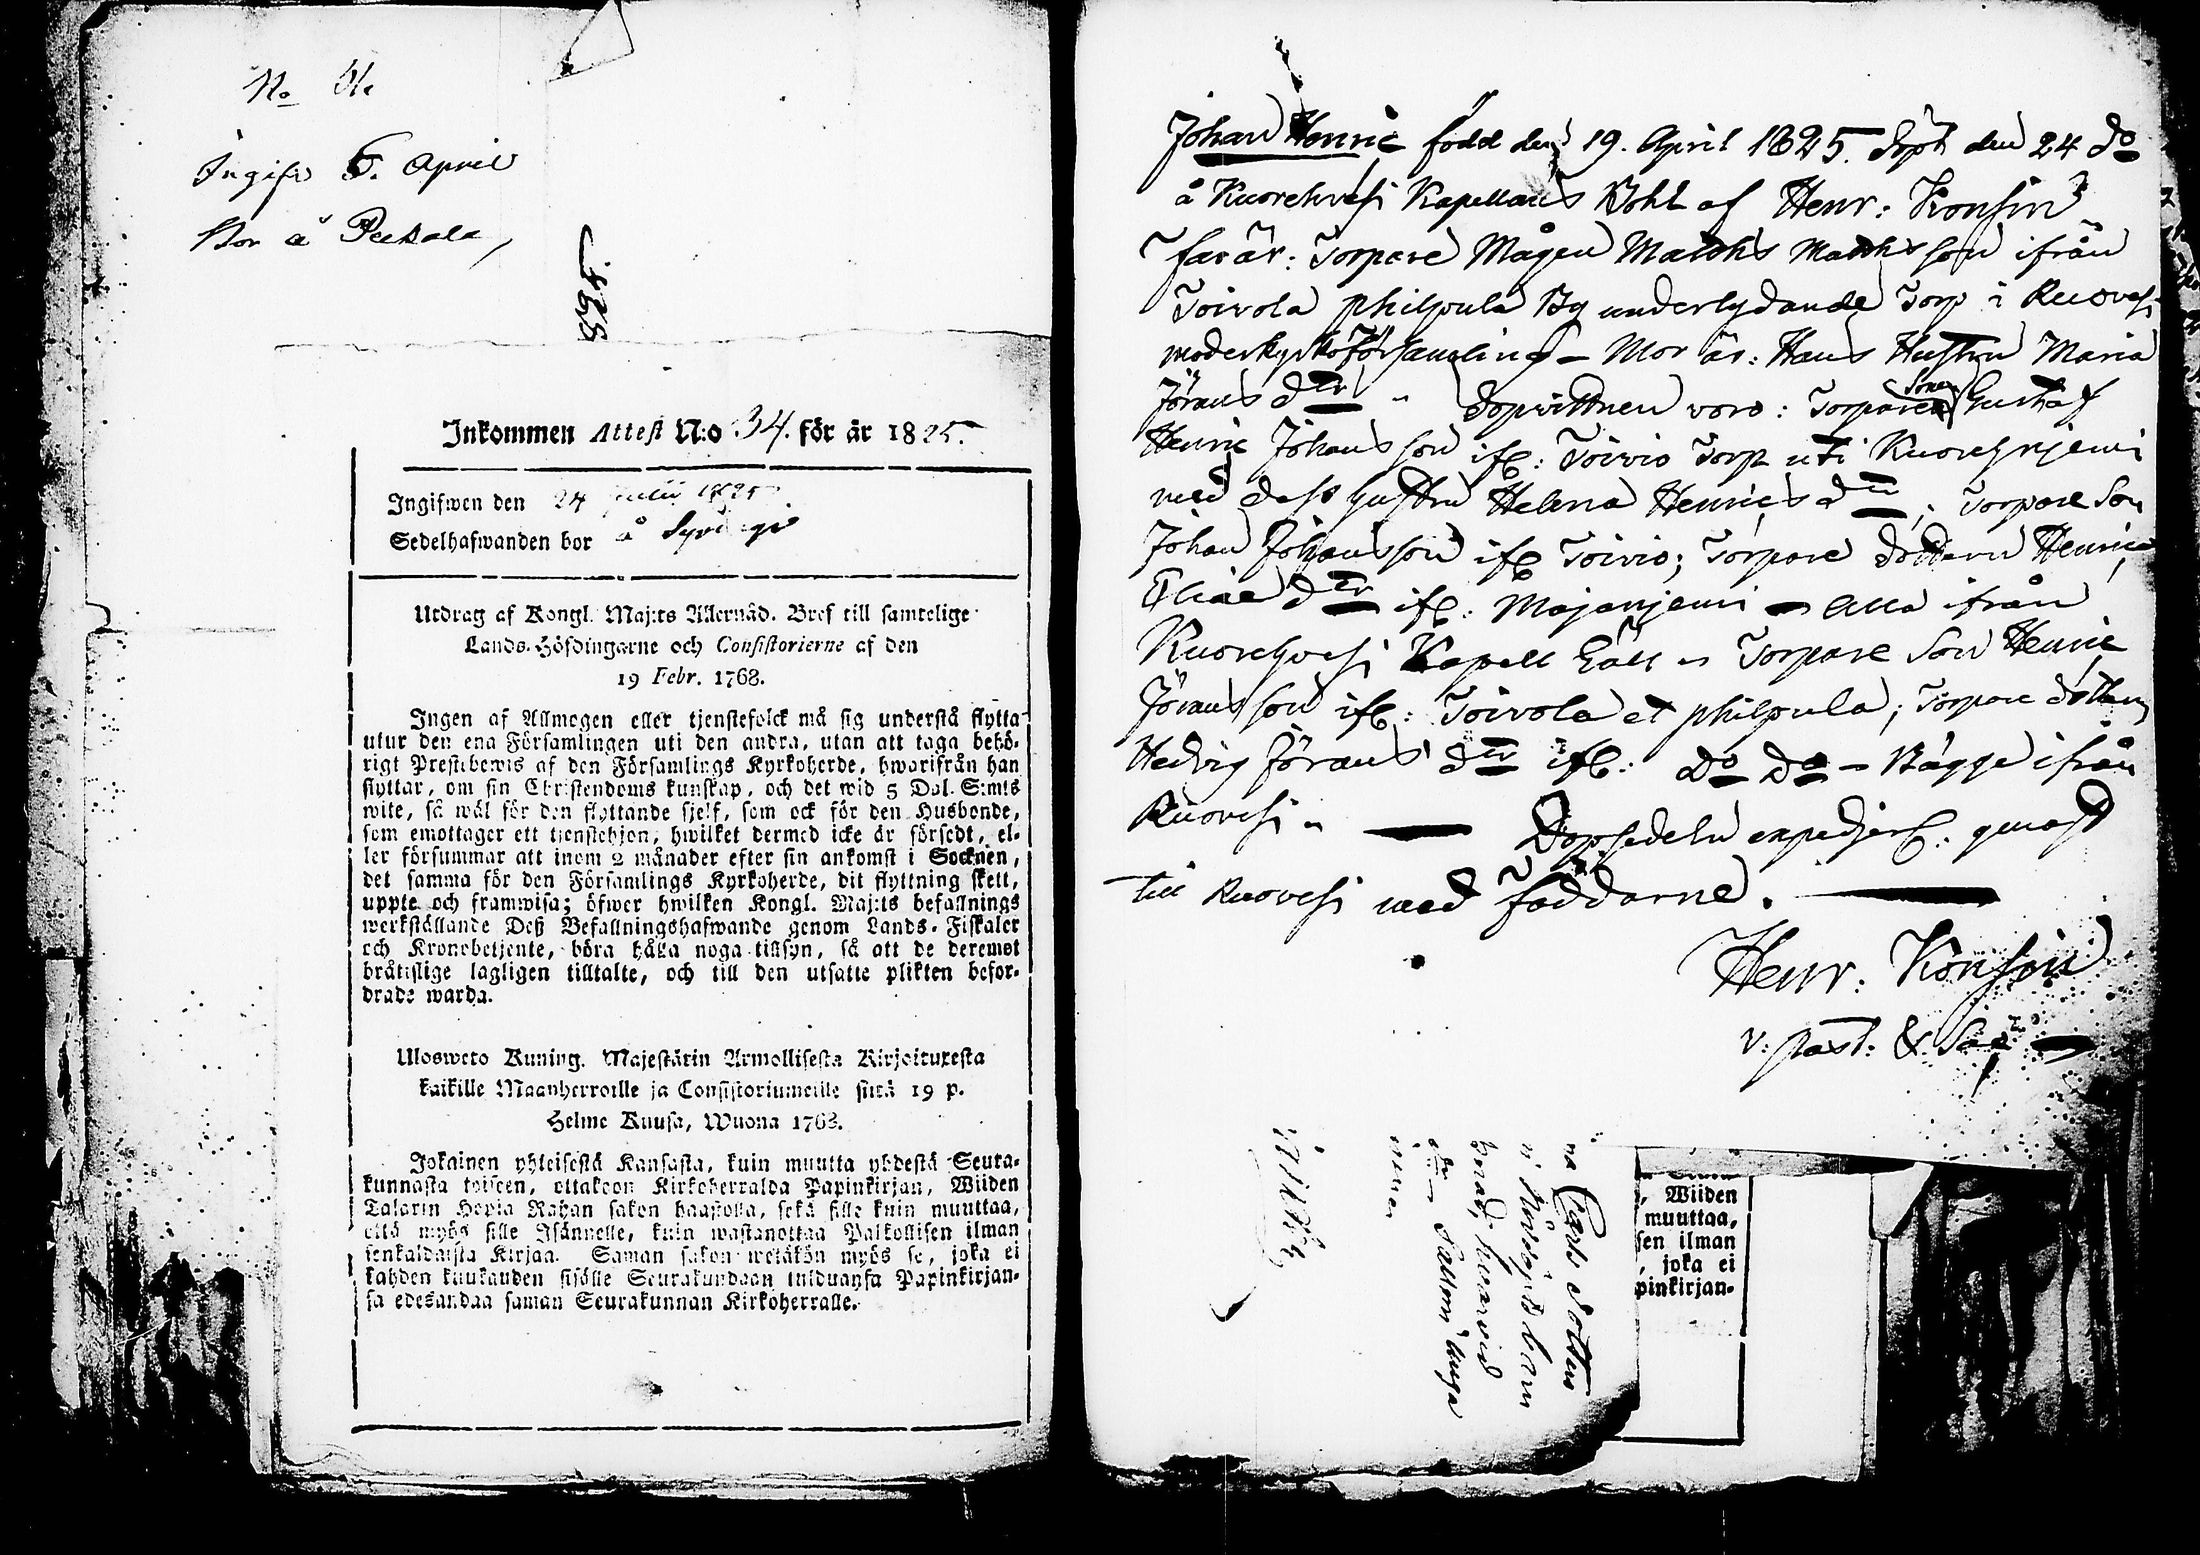 No
Ingifv. 6. April
Bor å Pekala
825.
Inkommen Attest N:o 34. för år 1825.
Ingifwen den 24 Julii 1825
Sedelhafwanden bor å
Utdrag af Kongl. Maj:ts Allernåd. Bref till samtelige
Lands-Höfdingarne och Consistorierne af den
19 Febr. 1768.
Ingen af Allmogen eller tjenstefolck må sig understå flytta
utur den ena Församlingen uti den andra, utan att taga behö-
rigt Prestebewis af den Församlings Kyrkoherde, hwarifrån han
flyttar, om sin Christendoms kunskap, och det wid 5 Dal. S:mts
wite, så wäl för den flyttande sjelf, som ock för den Husbonde,
som emottager ett tjenstehjon, hwilket dermed icke är försedt, el-
ler försummar att inom 2 månader efter sin ankomst i Socknen,
det samma för den Församlings Kyrkoherde, dit flyttning skett,
uppte och framwisa; öfwer hwilken Kongl. Maj:ts befallnings
werkställande Deß Befallningshafwande genom Lands-Fiskaler
och Kronebetjente, böra hålla noga tillsyn, så att de deremot
bråtislige lagligen tilltalte, och till den utsatte plikten befor-
drade warda.
Ulosweto Kuning. Majestätin Armollisesta Kirjoituxesta
kaikille Maanherroille ja Consistoriumeille siitä 19 p.
Helme Kuusa, Wuona 1768.
Jokainen yhteisestä Kansasta, kuin muutta yhdestä Seura-
kunnasta toiseen, ottakoon Kirkoherralda Papinkirjan, Wiiden
Talarin Hopia Rahan sakon haastolla, sekä sille kuin muuttaa,
että myös sille Isännelle, kuin wastanottaa Palkollisen ilman
senkaldaista Kirjaa. Saman sakon wetäkön myös se, joka ei
kahden kuukauden sisälle Seurakundaan tulduansa Papinkirjan-
sa edesandaa saman Seurakunnan Kirkoherralle.
Johan Henric född den 19. April 1825. Döpt den 24 do
å Kuorehvesi Kapellans Bohl af Henr: Konsin
Far är: Torpare Mågen Matths Mattsson ifrån
Toivola Philpula By underlydande Torp i Ruovesi
moderkyrkoförsamling – Mor är: Hans Hustru Maria
Jörans dtr " Dopvittnen voro: Torparesonen Gustaf
Henric Johansson ifr: Toivio Torp uti Kuorehnjemi
med dess hustru Helena Henrics dtr; Torpare Son
Johan Johansson ifr Toivio; Torpare dottern Henrica
Eliae dtr ifr: Majanjemi – Alla ifrån
Kuorehvesi Kapell Gäll " Torpare Son Henric
Jöransson ifr: Toivola et Philpula; Torpare dottern
Hedvig Jörans dtr ifr: Do Do – Bägge ifrån
Ruovesi " — Dopsedeln expedjer: genast
till Ruovesi med faddarne.
Henr: Konsin
v: past: & Sac
Carls dotter
, Wiiden
muuttaa,
sen ilman
, joka ei
pinkirjan-